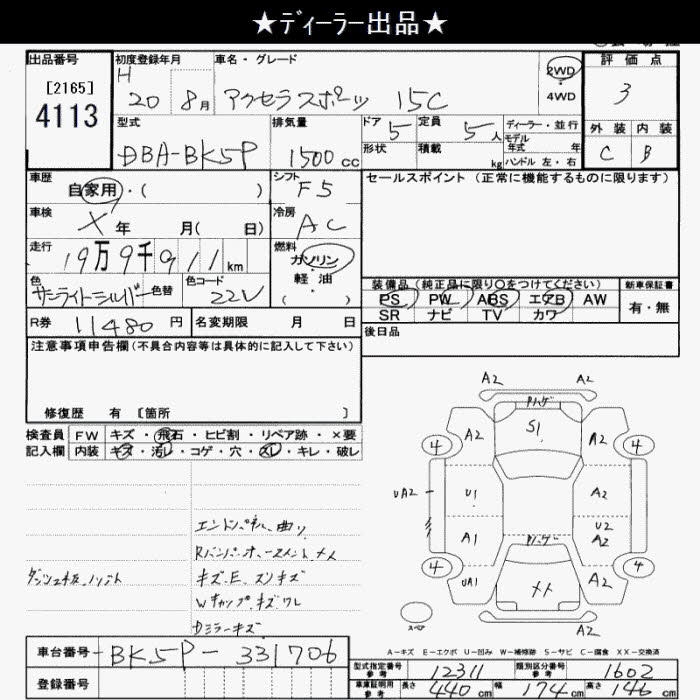 ★ディーラー出品★
出品番号 初度登録年月 車名・グレード 2WD 評価点
[2165] H 4WD 3
4113 20 8月 アクセラスポーツ 15C
型式 排気量 ドア 5 定員 5人 ディーラー・並行 外装 内装
DBA-BK5P 1500cc 形状 積載 kg モデル年式 年 C B
ハンドル 左・右
車歴 シフト F5 セールスポイント (正常に機能するものに限ります)
自家用・( )
車検 冷房 AC
X年 月( 日)
走行 燃料
19万9千911km ガソリン
軽油
色 色替 色コード ( )
サンライトシルバー 22V
装備品(純正品に限り○をつけてください) 新車保証書
PS PW ABS エアB AW 有・無
SR ナビ TV カワ
R券 11480円 名変期限 月 日 後日品
注意事項申告欄(不具合内容等は具体的に記入して下さい)
修復歴 有 [箇所 ]
検査員 FW キズ・飛石・ヒビ割・リペア跡・×要
記入欄 内装 キズ・汚レ・コゲ・穴・スレ・キレ・破レ
エンドパネル曲り
Rバンパーホースメントメス
ダッシュ板ノット キズ、E、スリキズ
Wキャップキズワレ
Dミラーキズ
A2 A2
Pハゲ
4 A2 S1 A2 4
UA2 U1 A2
U2
A1 Pハゲ A2
4 UA1 XX A2 4
スペア A2
A-キズ E-エクボ U-凹み W-補修跡 S-サビ C-腐食 XX-交換済
車台番号 BK5P-331706
型式指定番号 参考 12311 類別区分番号 参考 1602
登録番号
車庫証明用 参考 長さ 440cm 幅 174cm 高さ 146cm